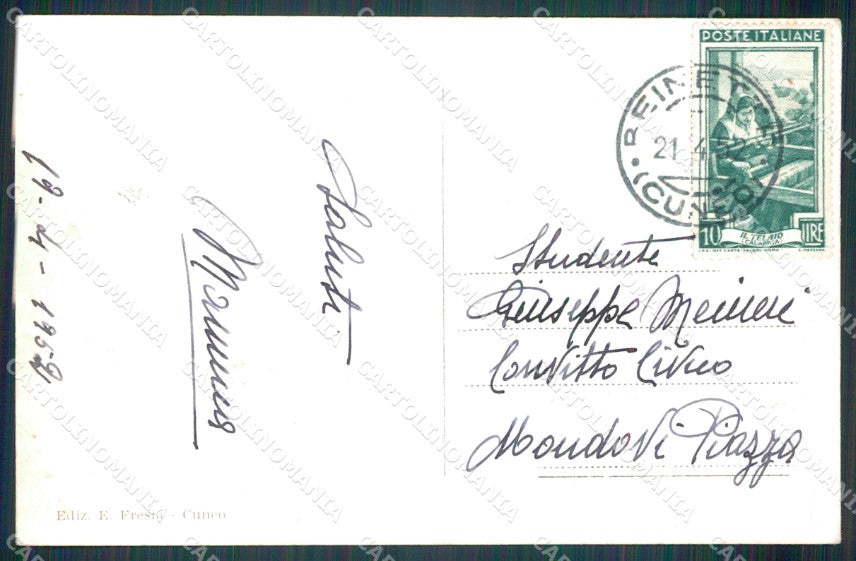 POSTE ITALIANE
10 LIRE
IL TELAIO
(CALABRIA)
21.4.52
(CUNEO)
19-4-1952
Saluti
Mamma
Studente
Giuseppe Meineri
Convitto Civico
Mondovì Piazza
Ediz. E. Fresia - Cuneo
CARTOLINOMANIA